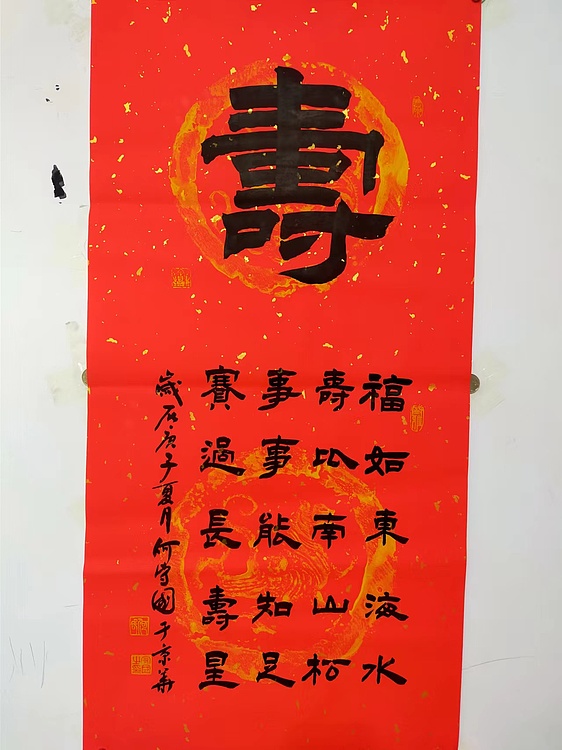 壽
福如東海水
壽比南山松
事事能知足
賽過長壽星
歲在庚子夏月何守國于京華